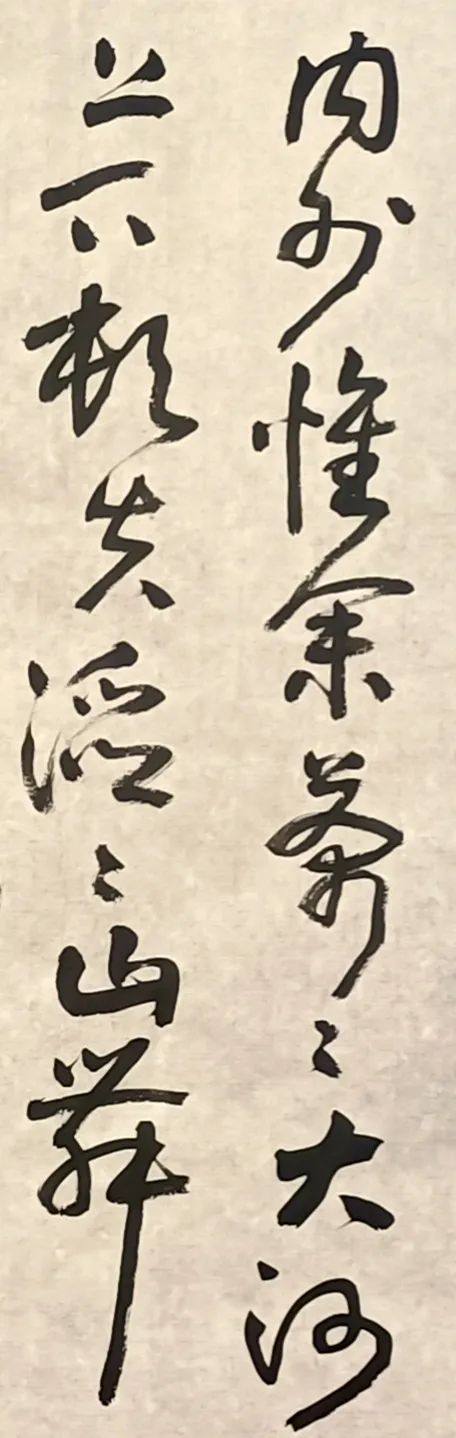 内外惟余莽〻大河
上下顿失滔〻山舞